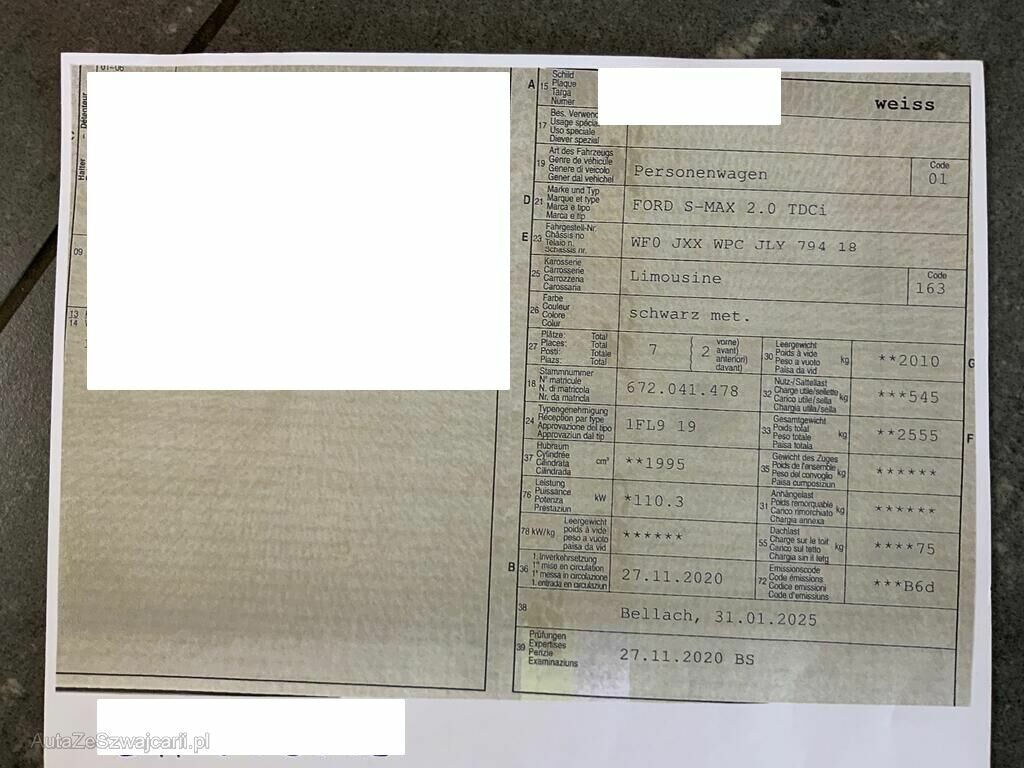 01-06
Halter
Détenteur
09
13
14
A 15 Schild
Plaque
Targa
Numer
weiss
17 Bes. Verwend
Usage spécia
Uso speciale
Diever spezial
19 Art des Fahrzeugs
Genre de véhicule
Genere di veicolo
Gener dal vehichel
Personenwagen
Code
01
D 21 Marke und Typ
Marque et type
Marca e tipo
Marca e tip
FORD S-MAX 2.0 TDCi
E 23 Fahrgestell-Nr.
Châssis no
Telaio n.
Schassis nr.
WF0 JXX WPC JLY 794 18
25 Karosserie
Carrosserie
Carrozzeria
Carossaria
Limousine
Code
163
26 Farbe
Couleur
Colore
Colur
schwarz met.
27 Plätze: Total
Places: Total
Posti: Totale
Plazs: Total
7 { 2 vorne)
avant)
anteriori)
davant)
30 Leergewicht
Poids à vide
Peso a vuoto
Paisa da vid
kg **2010 G
18 Stammnummer
N° matricule
N. di matricola
Nr. da matricla
672.041.478
32 Nutz-/Sattellast
Charge utile/sellette
Carico utile/sella
Chargia utila/sella
kg ***545
24 Typengenehmigung
Réception par type
Approvazione del tipo
Approvaziun dal tip
1FL9 19
33 Gesamtgewicht
Poids total
Peso totale
Paisa totala
kg **2555 F
37 Hubraum
Cylindrée
Cilindrata
Cilindrada
cm³ **1995
35 Gewicht des Zuges
Poids de l'ensemble
Peso del convoglio
Paisa cumposiziun
kg ******
76 Leistung
Puissance
Potenza
Prestaziun
kW *110.3
31 Anhängelast
Poids remorquable
Carico rimorchiato
Chargia annexa
kg ******
78 kW/kg Leergewicht
poids à vide
peso a vuoto
paisa da vid
******
55 Dachlast
Charge sur le toit
Carico sul tetto
Chargia sin il tetg
kg ****75
B 36 1. Inverkehrsetzung
1re mise en circulation
1a messa in circolazione
1. entrada en circulaziun
27.11.2020
72 Emissionscode
Code émissions
Codice emissioni
Code d'emissiuns
***B6d
38 Bellach, 31.01.2025
39 Prüfungen
Expertises
Perizie
Examinaziuns
27.11.2020 BS
AutaZeSzwajcarii.pl